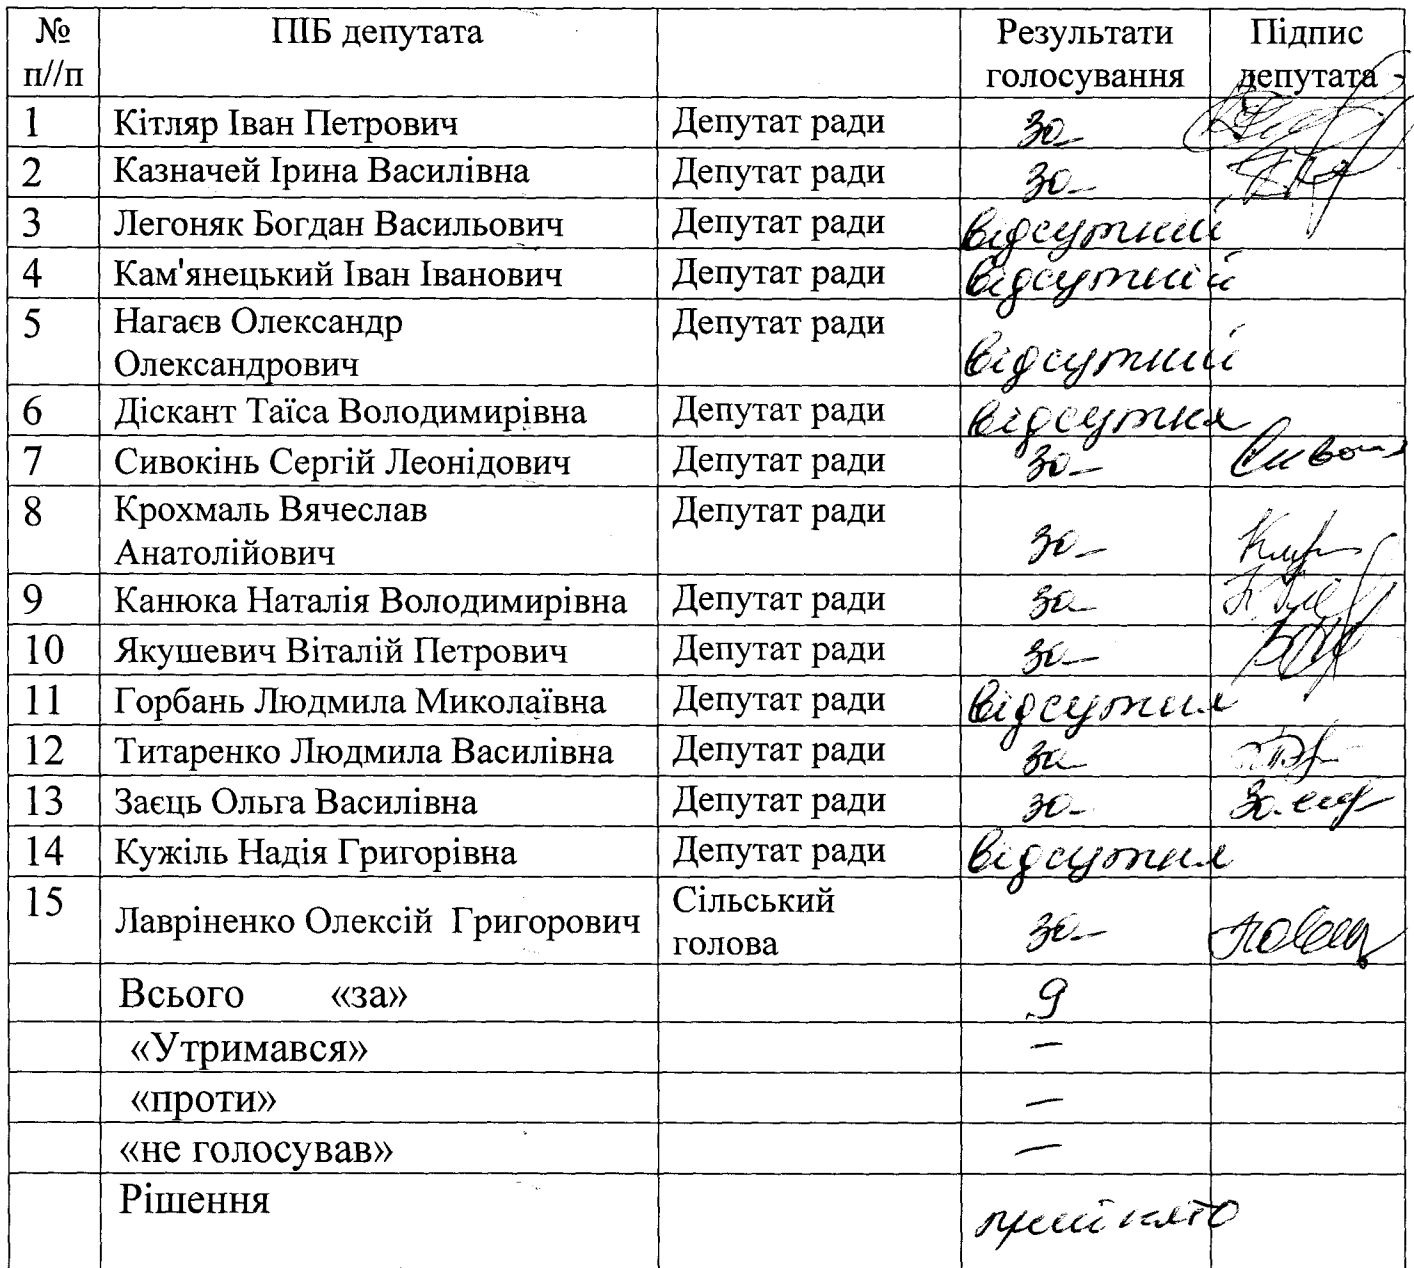 № п//п ПІБ депутата Результати голосування Підпис депутата
1 Кітляр Іван Петрович Депутат ради за
2 Казначей Ірина Василівна Депутат ради за
3 Легоняк Богдан Васильович Депутат ради відсутний
4 Кам'янецький Іван Іванович Депутат ради відсутній
5 Нагаєв Олександр Олександрович Депутат ради відсутний
6 Діскант Таїса Володимирівна Депутат ради відсутня
7 Сивокінь Сергій Леонідович Депутат ради за
8 Крохмаль Вячеслав Анатолійович Депутат ради за
9 Канюка Наталія Володимирівна Депутат ради за
10 Якушевич Віталій Петрович Депутат ради за
11 Горбань Людмила Миколаївна Депутат ради відсутня
12 Титаренко Людмила Василівна Депутат ради за
13 Заєць Ольга Василівна Депутат ради за
14 Кужіль Надія Григорівна Депутат ради відсутня
15 Лавріненко Олексій Григорович Сільський голова за
Всього «за» 9
«Утримався» —
«проти» —
«не голосував» —
Рішення прийнято